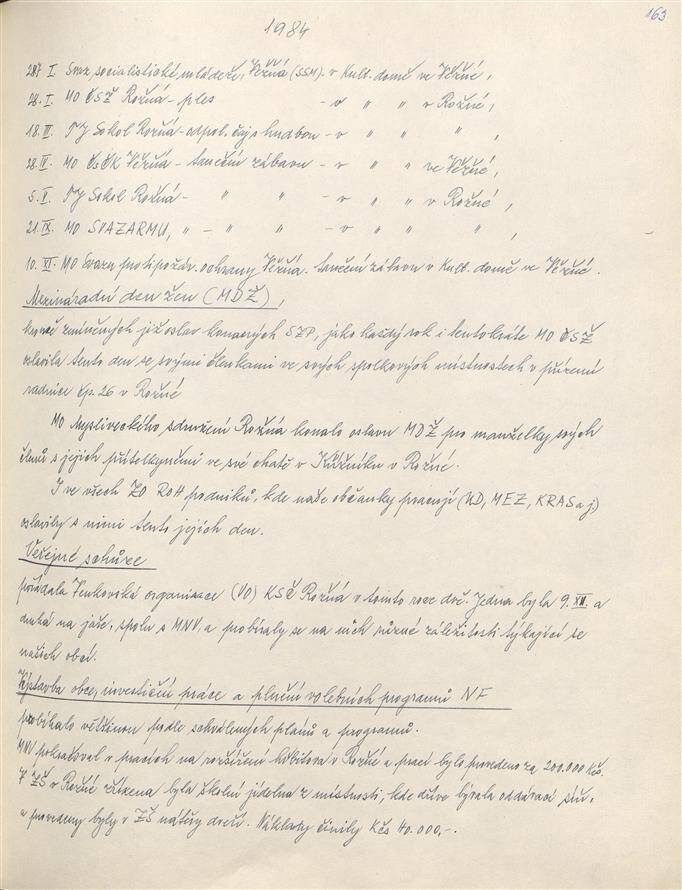 163
1984
28. I. Svaz socialistické mládeže, Věžná (SSM) - v Kult. domě ve Věžné,
28. I. MO ČSŽ Rožná - ples - v " " v Rožné,
18. II. TJ Sokol Rožná - odpol. čaj s hudbou - v " " " ,
28. IV. MO ČsČK Věžná - taneční zábava - v " " ve Věžné,
5. V. TJ Sokol Rožná - " " - v " " v Rožné,
21. IX. MO SVAZARMU, " - " " - v " " " ,
10. XI. MO Svazu protipožár. ochrany Věžná - taneční zábava v Kult. domě ve Věžné.
Mezinárodní den žen (MDŽ),
kromě zmíněných již oslav konaných SZP, jako každý rok i tentokráte MO ČSŽ
oslavila tento den se svými členkami ve svých spolkových místnostech v přízemí
radnice čp. 26 v Rožné
MO Mysliveckého sdružení Rožná konalo oslavu MDŽ pro manželky svých
členů s jejich přítelkyněmi ve své chatě v v Rožné.
I ve všech ZO ROH podniků, kde naše občanky pracují (UD, MEZ, KRAS a j)
oslavily s nimi tento jejich den.
Veřejné schůze
pořádala Venkovská organisace (VO) KSČ Rožná v tomto roce dvě. Jedna byla 9. XII. a
druhá na jaře, spolu s MNV, a probíraly se na nich různé záležitosti týkající se
našich obcí.
Výstavba obce, investiční práce a plnění volebních programů NF
probíhalo většinou podle schválených plánů a programů.
MNV pokračoval v pracích na rozšíření hřbitova v Rožné a prací bylo provedeno za 200.000 Kčs.
V ZŠ v Rožné zřízena byla školní jídelna z místnosti, kde dříve bývala oddávací síň,
a provedeny byly v ZŠ nátěry dveří. Náklady činily Kčs 40.000,-.